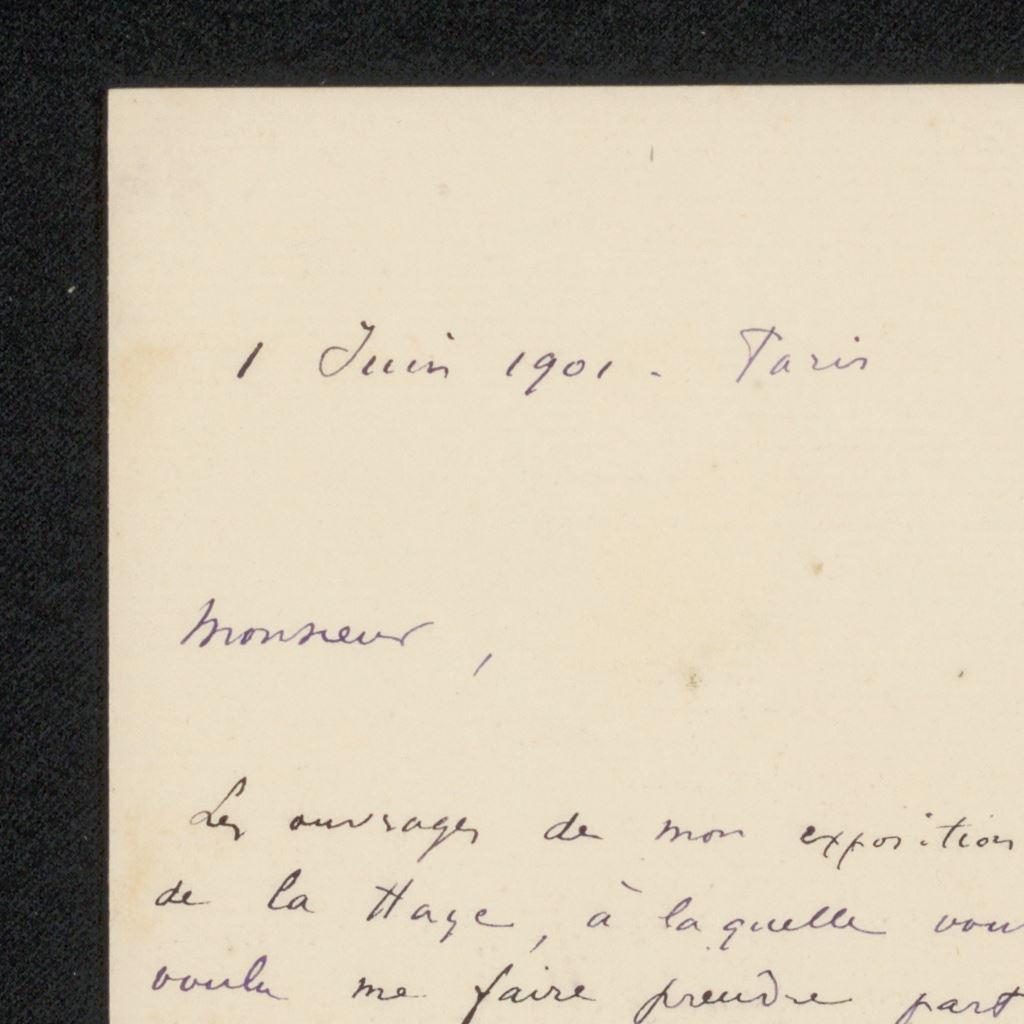 1 Juin 1901. Paris
Monsieur,
Les ouvrages de mon exposition
de la Haye, à laquelle vou
voulu me faire prendre part